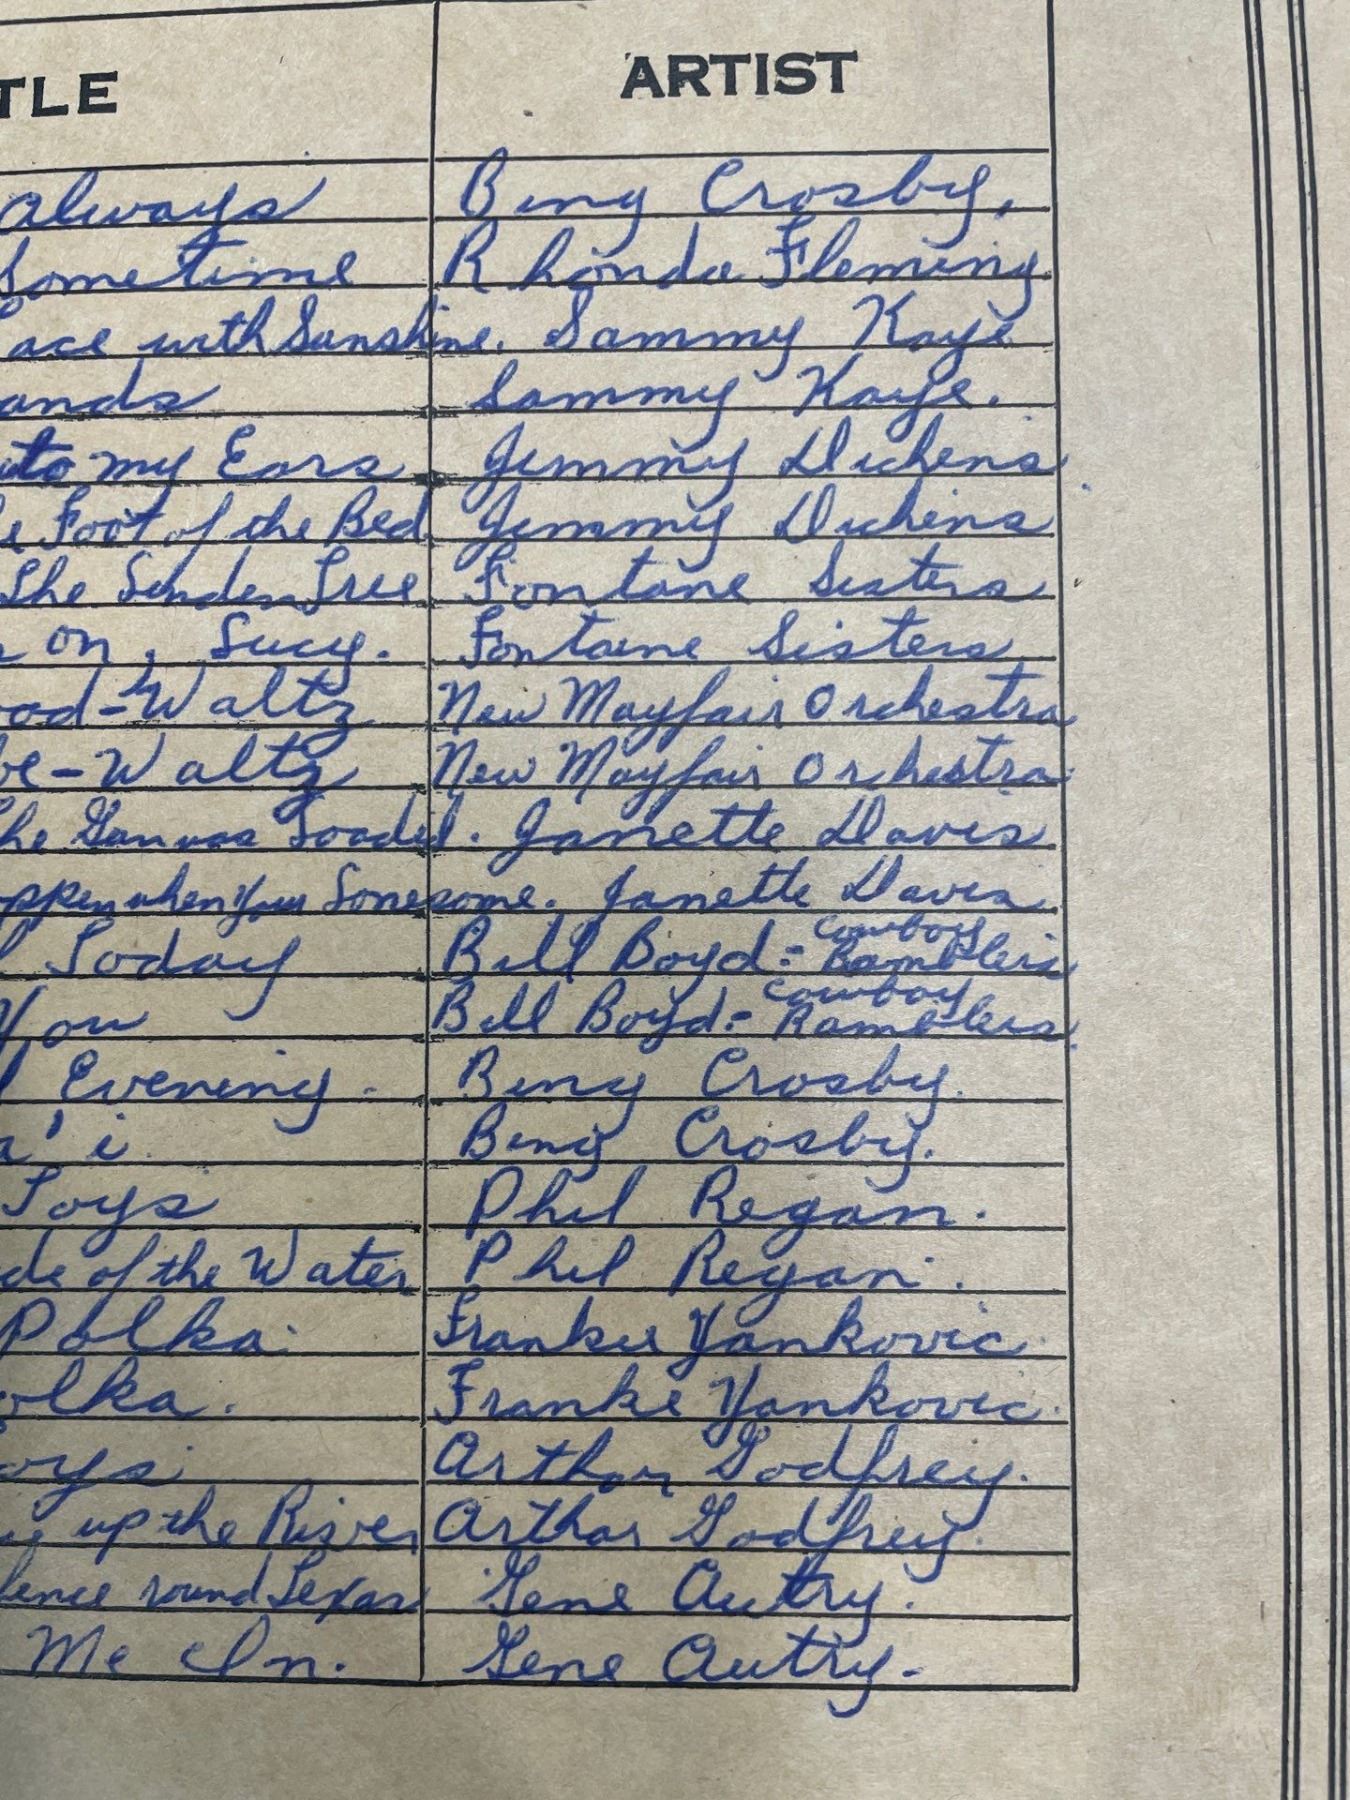 TLE ARTIST
always Bing Crosby,
Sometime Rhonda Fleming
ace with Sunshine. Sammy Kaye
ands Sammy Kaye.
to my Ears Jimmy Dickens
e Foot of the Bed Jimmy Dickens
The Linden Tree Fontane Sisters
on, Lucy. Fontaine Sisters
ood-Waltz New Mayfair Orchestra
be-Waltz New Mayfair Orchestra
he Gun was Loaded. Janette Davis
ppen when Lonesome. Janette Davis
l Today Bill Boyd - Cowboy Ramblers
You Bill Boyd - Cowboy Ramblers
Evening. Bing Crosby.
a'i. Bing Crosby.
Toys Phil Regan.
de of the Water Phil Regan.
Polka. Frankie Yankovic.
olka. Frankie Yankovic.
oys. Arthur Godfrey.
up the River Arthur Godfrey.
fence round Texas Gene Autry.
Me In. Gene Autry.